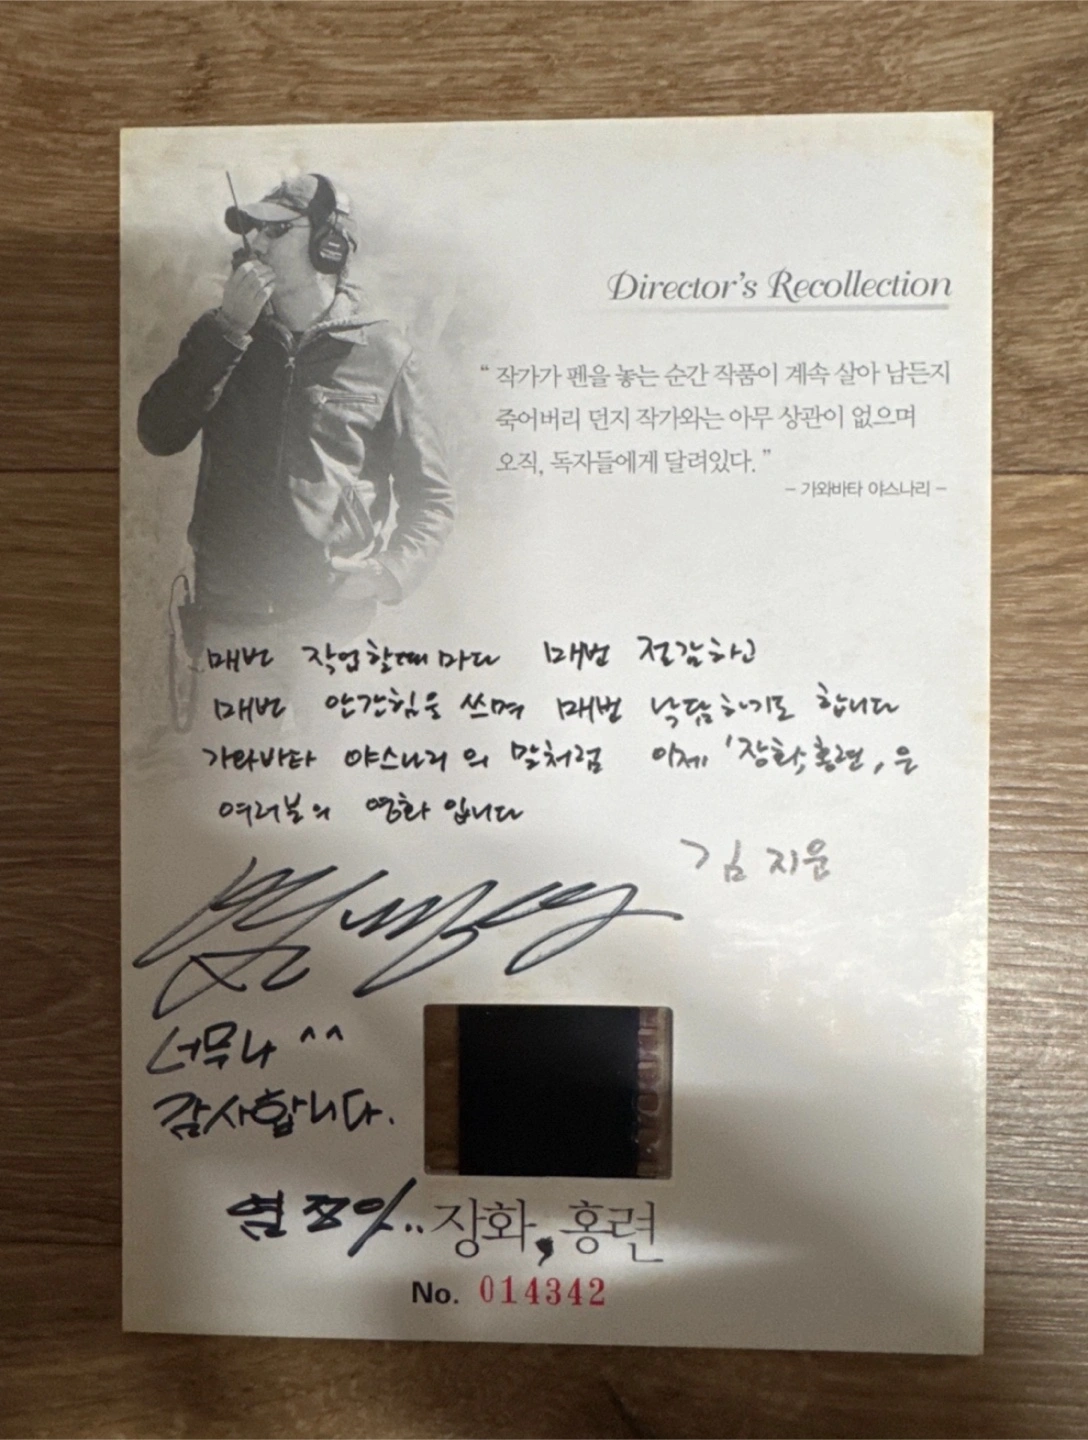 Director's Recollection
“ 작가가 펜을 놓는 순간 작품이 계속 살아 남든지
죽어버리 던지 작가와는 아무 상관이 없으며
오직, 독자들에게 달려있다. ”
– 가와바타 야스나리 –
매번 작업할때 마다 매번 절감하고
매번 안간힘을 쓰며 매번 낙담하기도 합니다
가와바타 야스나리의 말처럼 이제 '장화,홍련,은
여러분의 영화 입니다
김지운
너무나 ^^
감사합니다.
염정아..
장화, 홍련
No. 014342